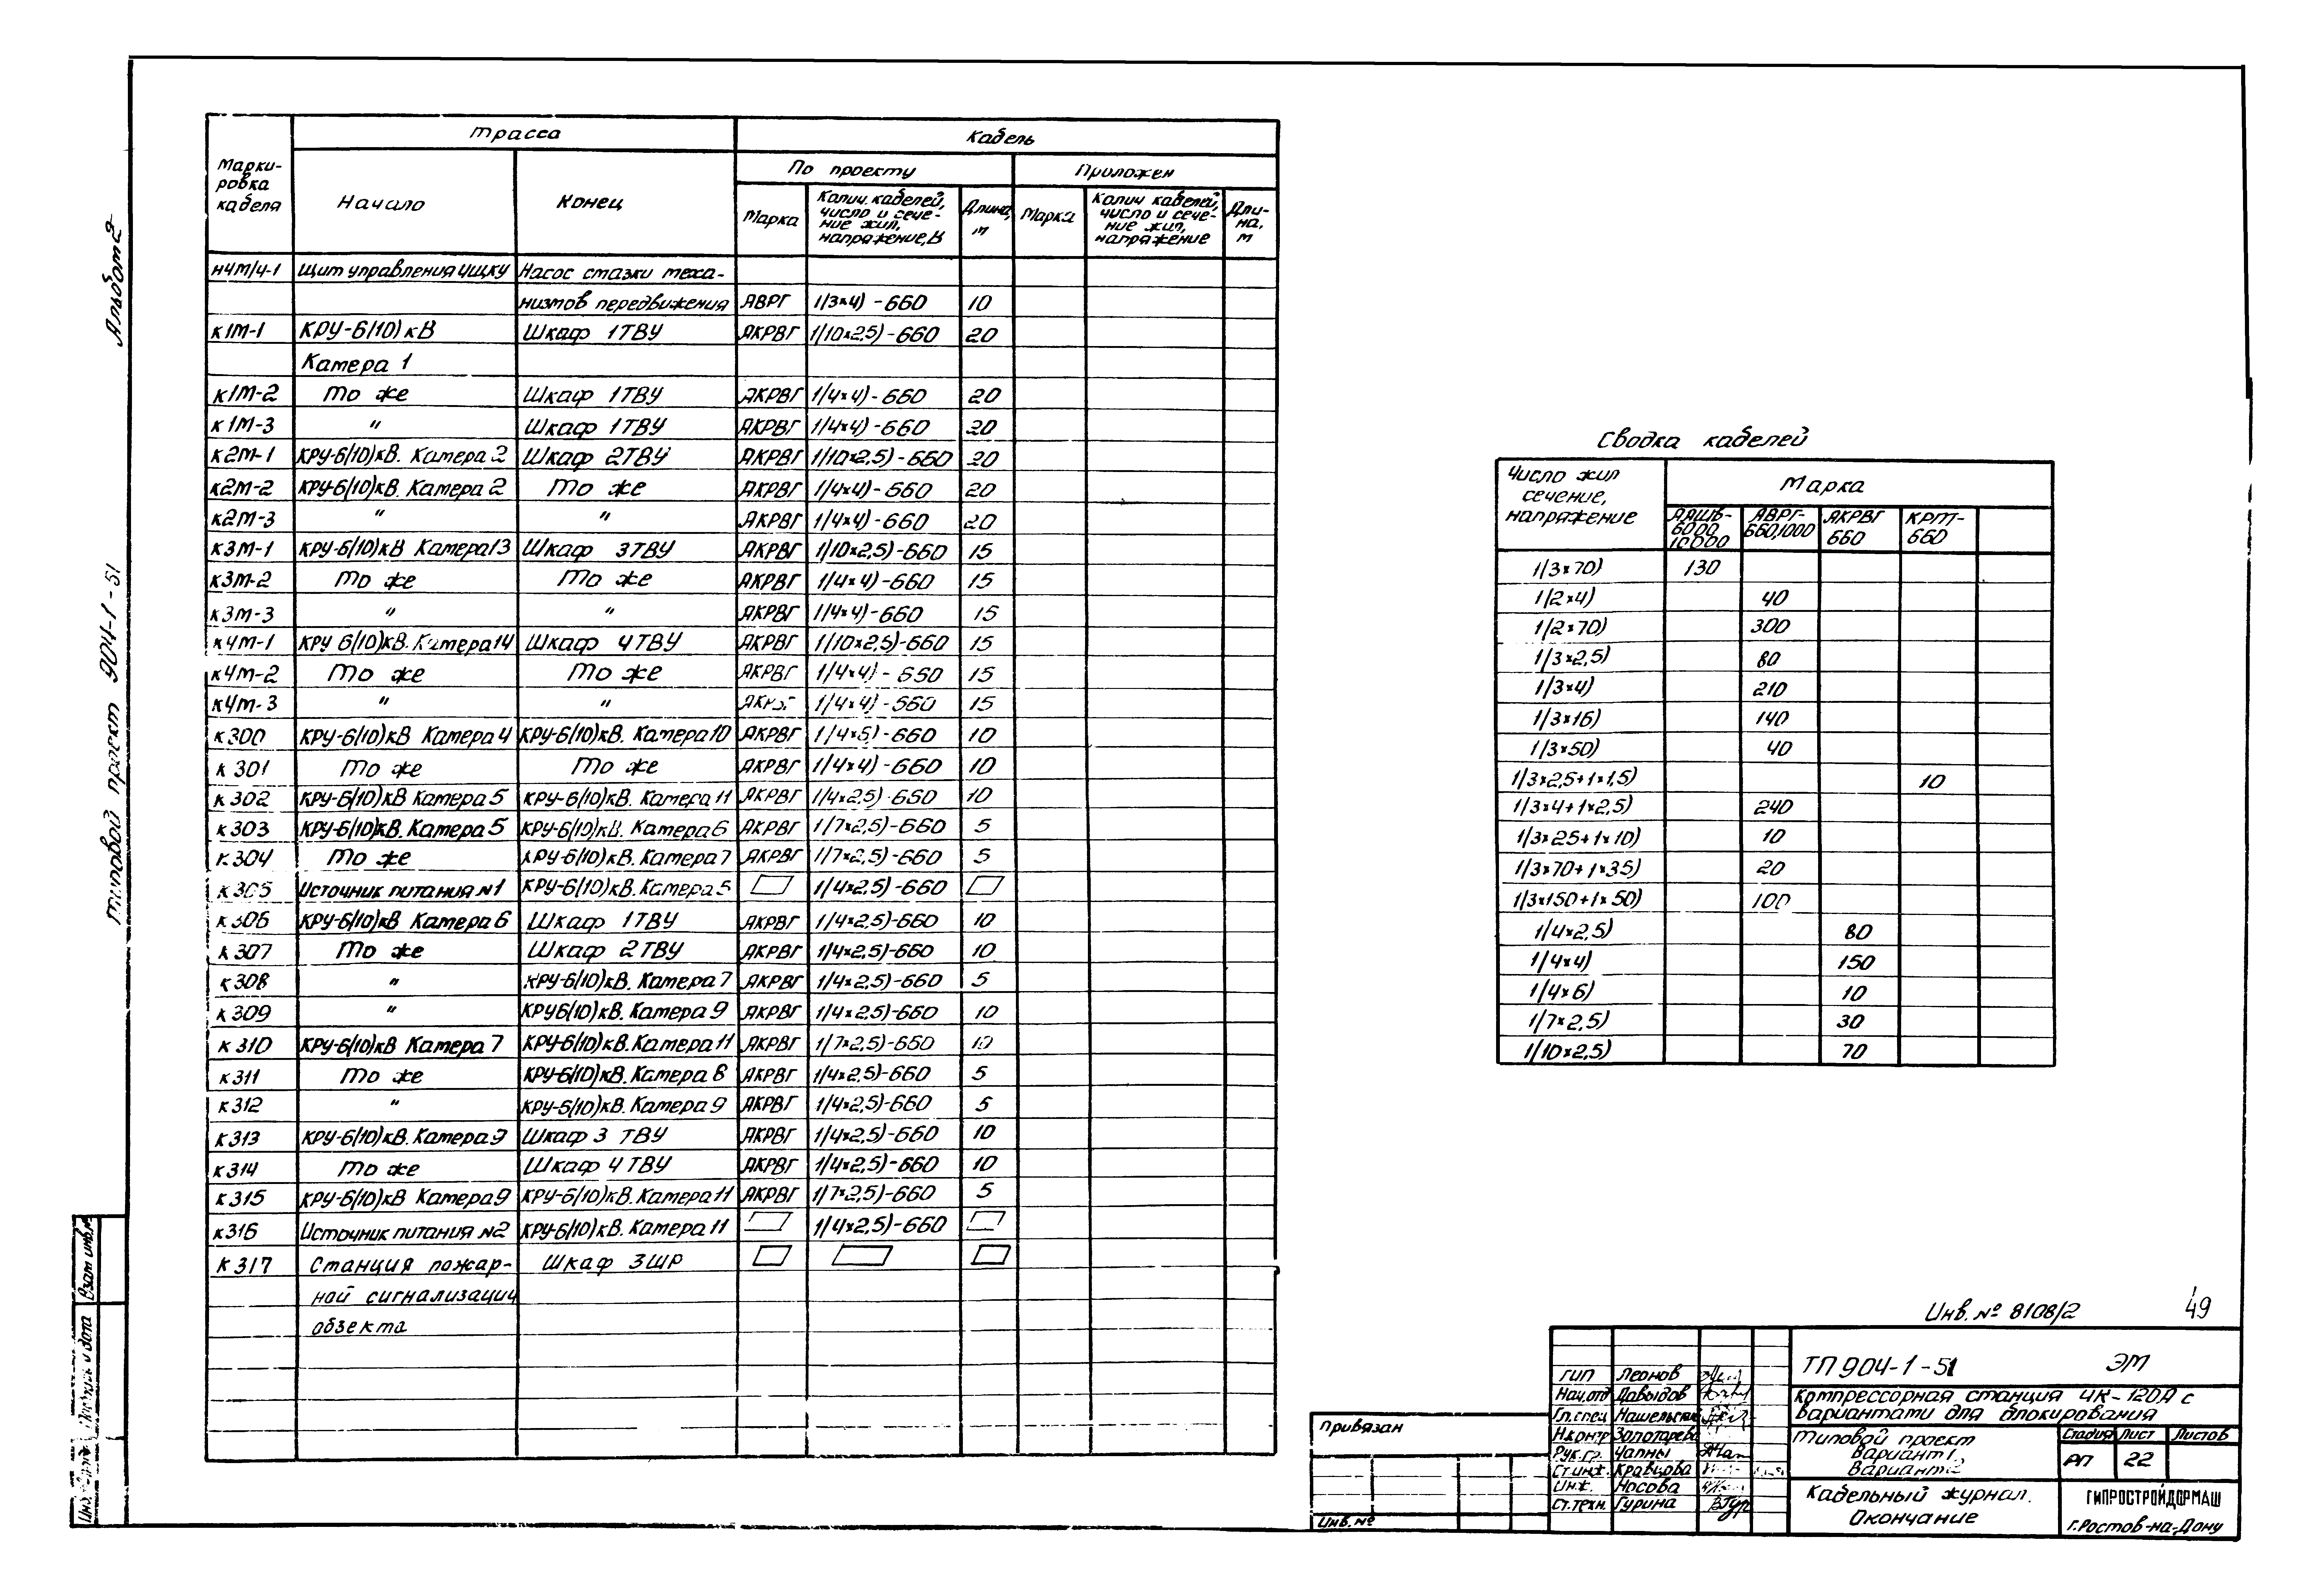 Альбом 2
Типовой проект 904-1-51
Марки-
ровка
кабеля
Трасса
Кабель
Начало
Конец
По проекту
Проложен
Марка
Колич. кабелей,
число и сече-
ние жил,
напряжение, В
Длина,
м
Марка
Колич. кабелей,
число и сече-
ние жил,
напряжение
Дли-
на,
м
н4М/4-1 Щит управления 4ЩКУ Насос смазки меха-
низмов передвижения АВРГ 1/3×4)-660 10
к1М-1 КРУ-6/10)кВ Шкаф 1ТВУ АКРВГ 1/10×2,5)-660 20
Камера 1
к1М-2 То же Шкаф 1ТВУ АКРВГ 1/4×4)-660 20
к1М-3 " Шкаф 1ТВУ АКРВГ 1/4×4)-660 20
к2М-1 КРУ-6/10)кВ. Камера 2 Шкаф 2ТВУ АКРВГ 1/10×2,5)-660 20
к2М-2 КРУ-6/10)кВ. Камера 2 То же АКРВГ 1/4×4)-660 20
к2М-3 " " АКРВГ 1/4×4)-660 20
к3М-1 КРУ-6/10)кВ Камера 13 Шкаф 3ТВУ АКРВГ 1/10×2,5)-660 15
к3М-2 То же То же АКРВГ 1/4×4)-660 15
к3М-3 " " АКРВГ 1/4×4)-660 15
к4М-1 КРУ 6/10)кВ. Камера 14 Шкаф 4ТВУ АКРВГ 1/10×2,5)-660 15
к4М-2 То же То же АКРВГ 1/4×4)-660 15
к4М-3 " " АКРВГ 1/4×4)-660 15
к300 КРУ-6/10)кВ Камера 4 КРУ-6/10)кВ. Камера 10 АКРВГ 1/4×6)-660 10
к301 То же То же АКРВГ 1/4×4)-660 10
к302 КРУ-6/10)кВ Камера 5 КРУ-6/10)кВ. Камера 11 АКРВГ 1/4×2,5)-660 10
к303 КРУ-6/10)кВ. Камера 5 КРУ-6/10)кВ. Камера 6 АКРВГ 1/7×2,5)-660 5
к304 То же КРУ-6/10)кВ. Камера 7 АКРВГ 1/7×2,5)-660 5
к305 Источник питания №1 КРУ-6/10)кВ. Камера 5 1/4×2,5)-660
к306 КРУ-6/10)кВ Камера 6 Шкаф 1ТВУ АКРВГ 1/4×2,5)-660 10
к307 То же Шкаф 2ТВУ АКРВГ 1/4×2,5)-660 10
к308 " КРУ-6/10)кВ. Камера 7 АКРВГ 1/4×2,5)-660 5
к309 " КРУ6/10)кВ. Камера 9 АКРВГ 1/4×2,5)-660 10
к310 КРУ-6/10)кВ Камера 7 КРУ-6/10)кВ. Камера 11 АКРВГ 1/7×2,5)-660 10
к311 То же КРУ-6/10)кВ. Камера 8 АКРВГ 1/4×2,5)-660 5
к312 " КРУ-6/10)кВ. Камера 9 АКРВГ 1/4×2,5)-660 5
к313 КРУ-6/10)кВ. Камера 9 Шкаф 3 ТВУ АКРВГ 1/4×2,5)-660 10
к314 То же Шкаф 4ТВУ АКРВГ 1/4×2,5)-660 10
к315 КРУ-6/10)кВ Камера 9 КРУ-6/10)кВ. Камера 11 АКРВГ 1/7×2,5)-660 5
к316 Источник питания №2 КРУ-6/10)кВ. Камера 11 1/4×2,5)-660
К317 Станция пожар- Шкаф 3ШР
ной сигнализации
обзекта
Сводка кабелей
Число жил
сечение,
напряжение
Марка
ААШВ-
6000
10000
АВРГ-
660,1000
АКРВГ
660
КРПТ-
660
1/3×70) 130
1/2×4) 40
1/2×70) 300
1/3×2,5) 80
1/3×4) 210
1/3×16) 140
1/3×50) 40
1/3×2,5+1×1,5) 10
1/3×4+1×2,5) 240
1/3×25+1×10) 10
1/3×70+1×35) 20
1/3×150+1×50) 100
1/4×2,5) 80
1/4×4) 150
1/4×6) 10
1/7×2,5) 30
1/10×2,5) 70
Инв. № 8108/2
49
Привязан
Инв. №
ГИП Леонов
Нач.отд Давыдов
Гл.спец Нашельский
Н.контр Золотарева
Рук.гр. Чапны
Ст.инж. Кравцова
Инж. Носова
Ст.техн. Гурина
ТП 904-1-51 ЭМ
Компрессорная станция 4К-120А с
вариантами для блокирования
Типовой проект
Вариант 1
Вариант 2
Стадия Лист Листов
РП 22
Кадельный журнал.
Окончание
ГИПРОСТРОЙДОРМАШ
г.Ростов-на-Дону
Взам инв.№